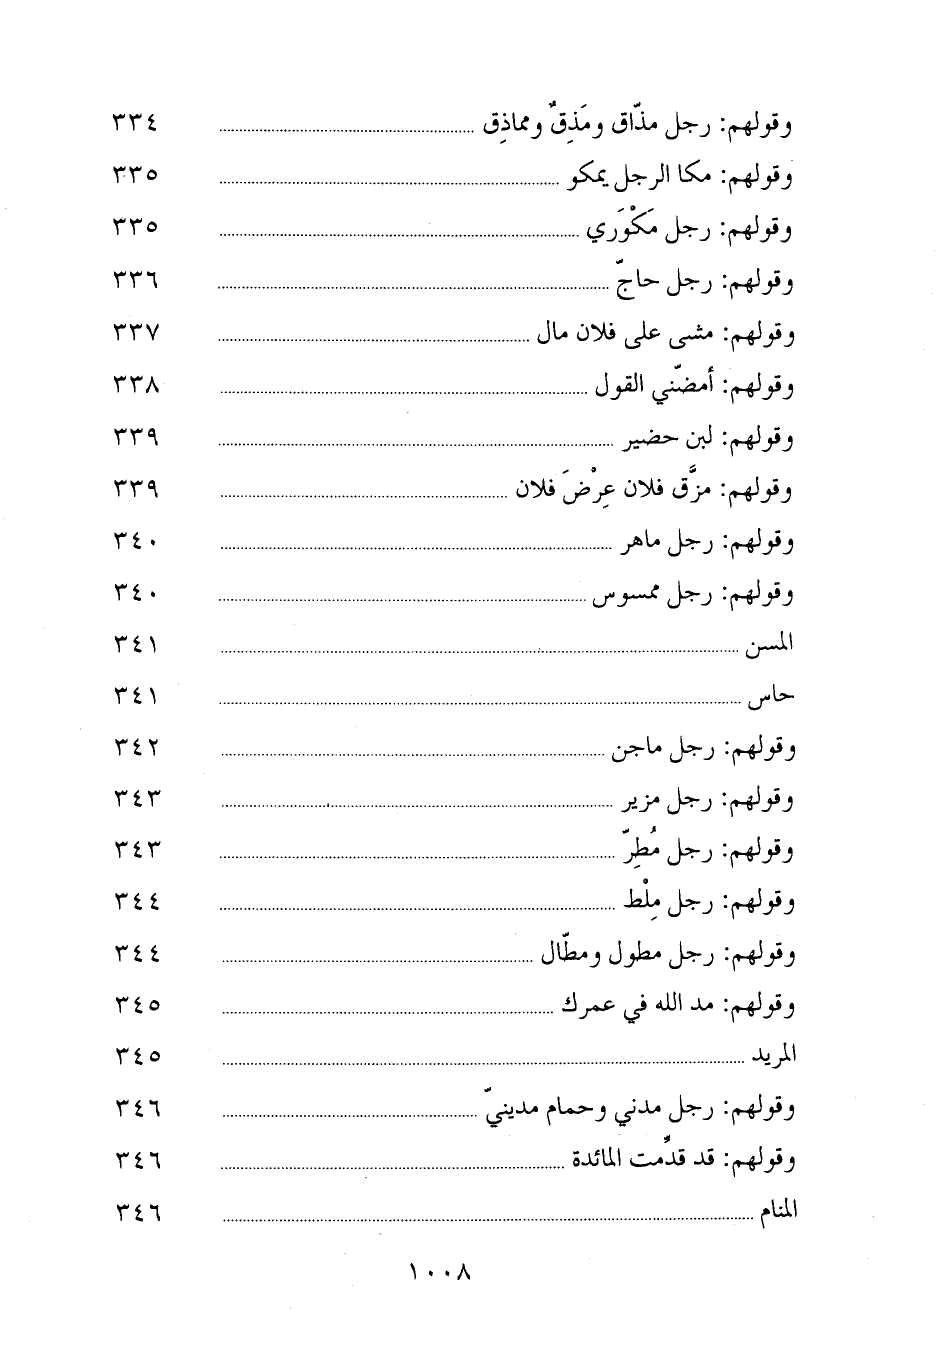 وقولهم: رجل مذّاق ومَذِقٌ ومماذِق ٣٣٤
وقولهم: مكا الرجل يمكو ٣٣٥
وقولهم: رجل مَكْوَري ٣٣٥
وقولهم: رجل حاجّ ٣٣٦
وقولهم: مشى على فلان مال ٣٣٧
وقولهم: أمضّني القول ٣٣٨
وقولهم: لبن حضير ٣٣٩
وقولهم: مزَّق فلان عِرْضَ فلان ٣٣٩
وقولهم: رجل ماهر ٣٤٠
وقولهم: رجل ممسوس ٣٤٠
المسن ٣٤١
حاس ٣٤١
وقولهم: رجل ماجن ٣٤٢
وقولهم: رجل مزير ٣٤٣
وقولهم: رجل مُطِرّ ٣٤٣
وقولهم: رجل مِلْط ٣٤٤
وقولهم: رجل مطول ومطّال ٣٤٤
وقولهم: مد الله في عمرك ٣٤٥
المريد ٣٤٥
وقولهم: رجل مدني وحمام مدينيّ ٣٤٦
وقولهم: قد قدِّمت المائدة ٣٤٦
المنام ٣٤٦
١٠٠٨